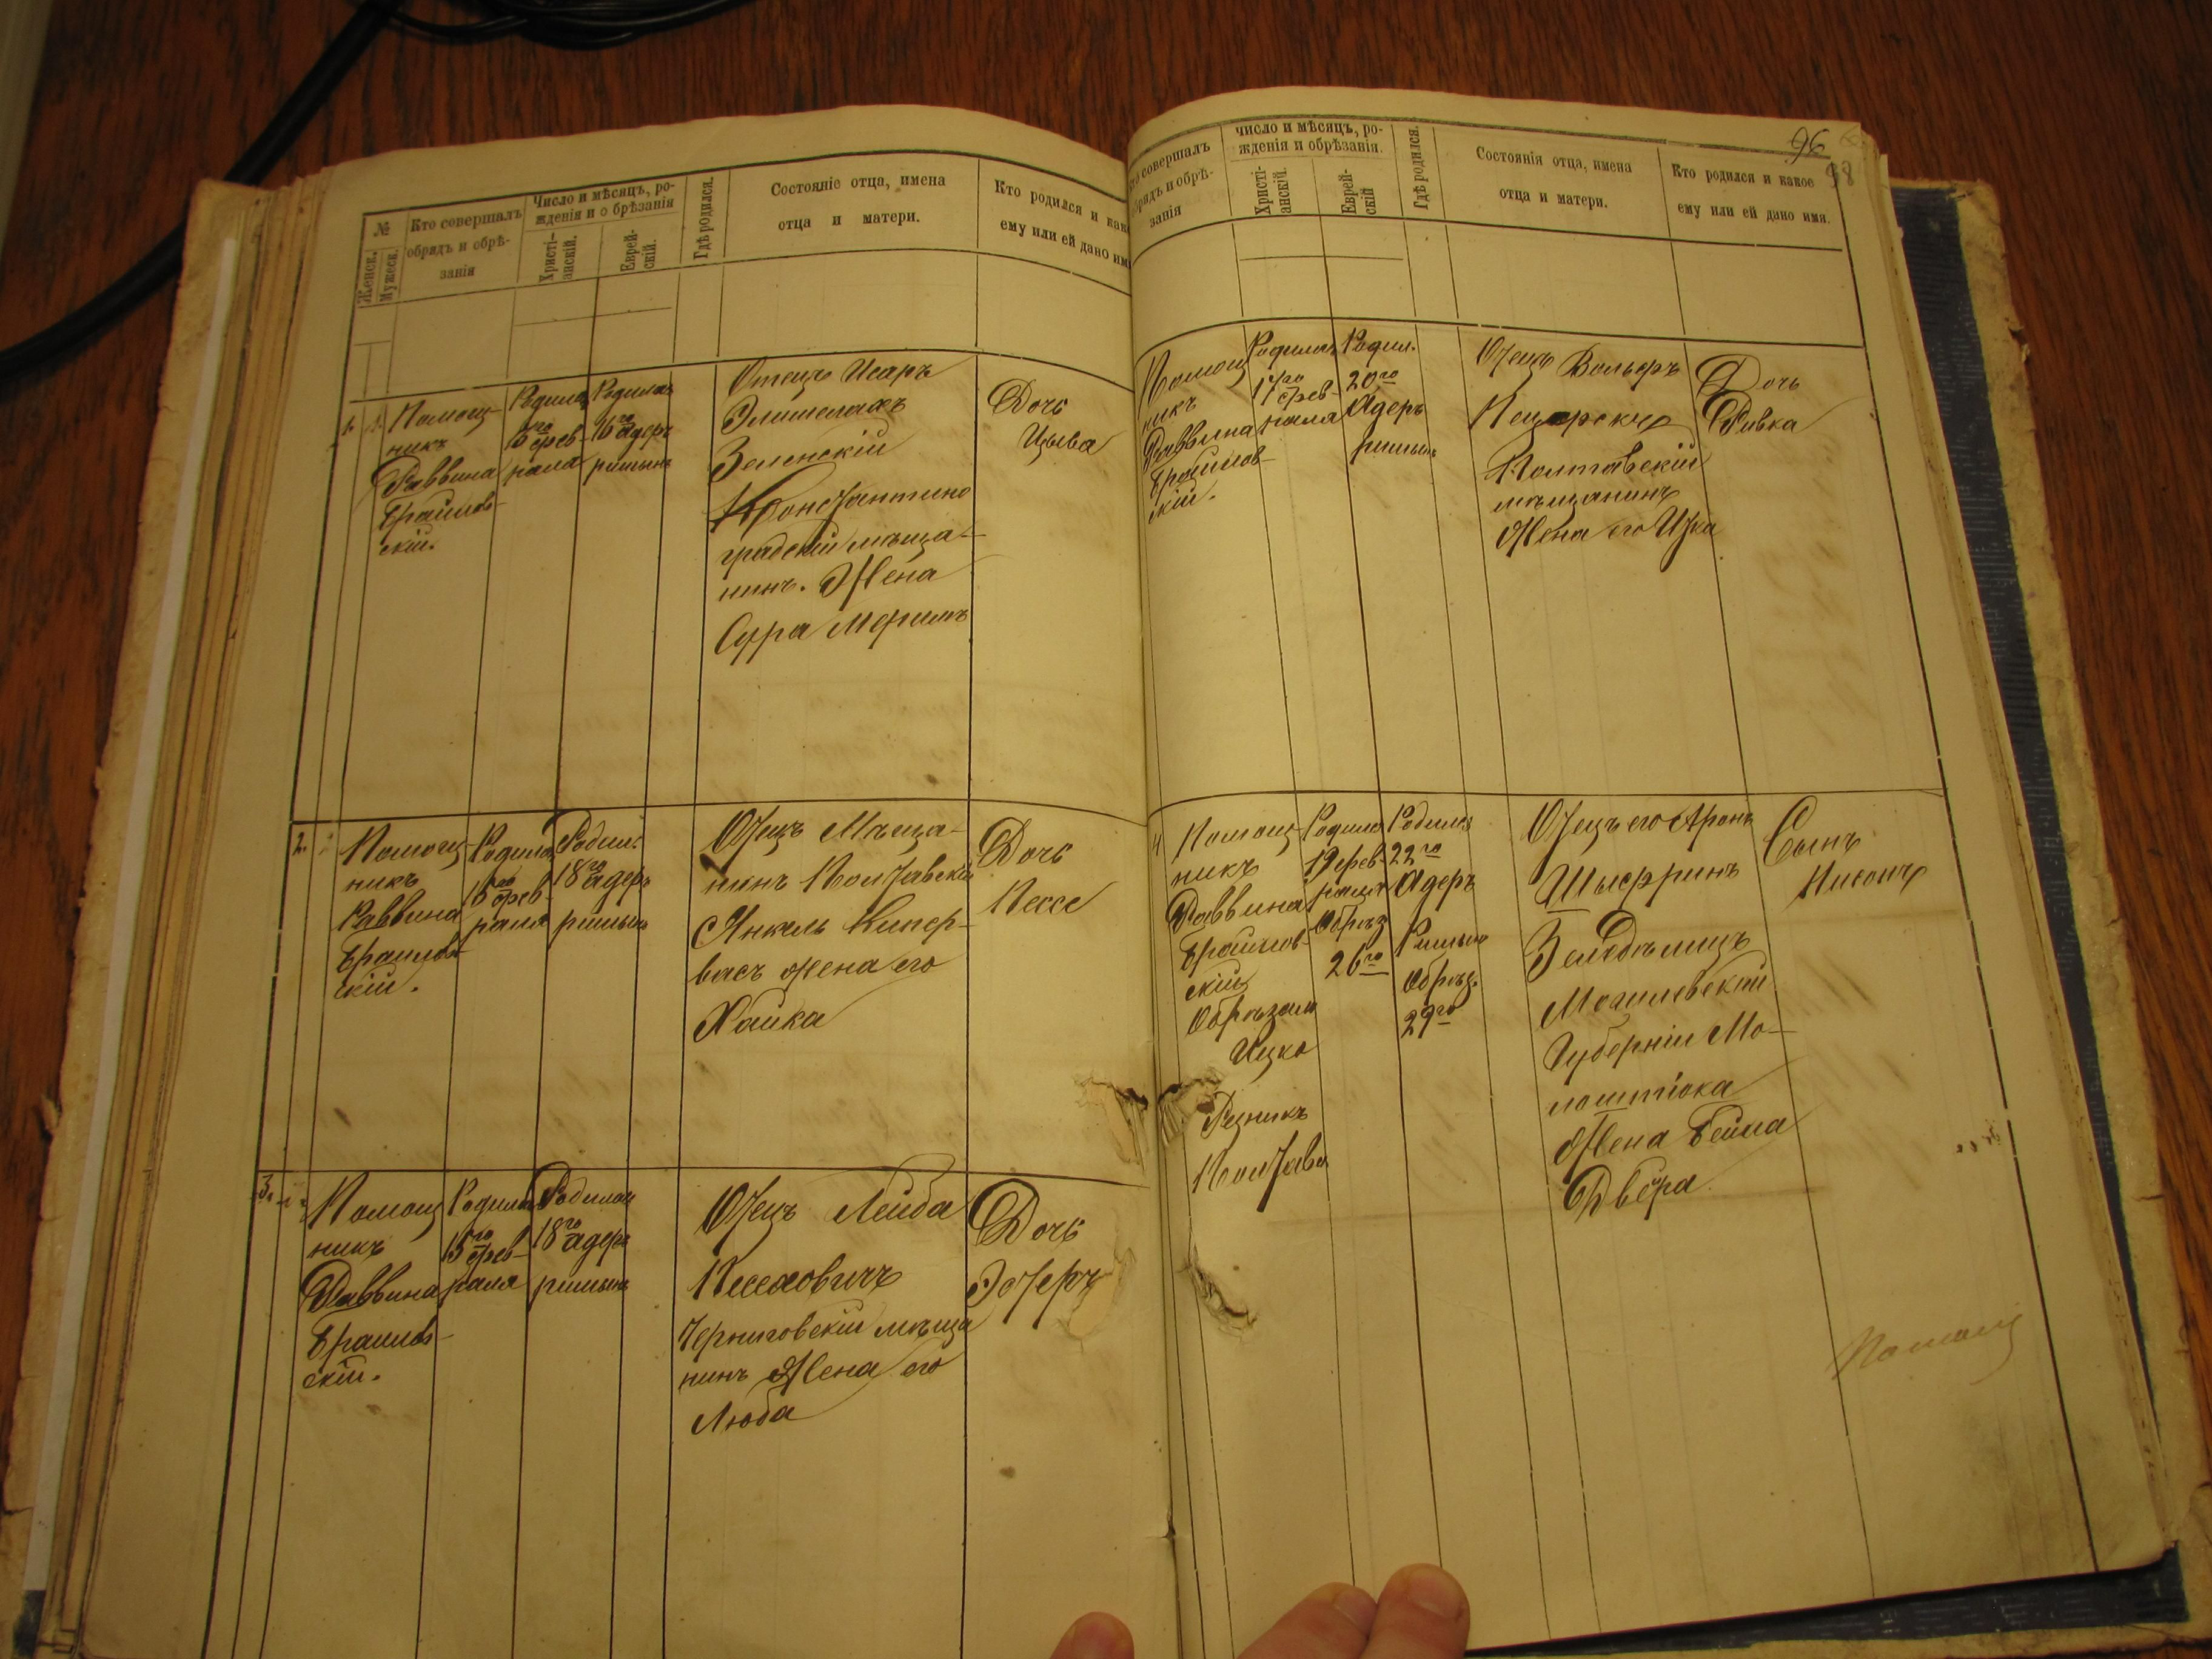 №
Женск.
Мужеск.
Кто совершалъ
обрядъ и обрѣ-
занія
Число и мѣсяцъ, ро-
жденія и о брѣзанія
Христі-
анскій.
Еврей-
скій.
Гдѣ родился.
Состояніе отца, имена
отца и матери.
Кто родился и как
ему или ей дано им
1.
Помощ-
никъ
Раввина
Браилов-
скій.
Родилась
16го фев-
раля
Родилась
16го Адеръ
ришынъ
Отецъ Исаръ
Элимелахъ
Зеленскій
Константино
градскій мѣща-
нинъ. Жена
Сура Меримъ
Дочь
Цыва
2.
Помощ-
никъ
Раввина
Браилов-
скій.
Родилась
15го фев-
раля
Родил.
18го Адеръ
ришынъ
Отецъ Мѣща-
нинъ Полтавскій
Янкель Кипер-
васъ жена его
Хайка
Дочь
Пессе
3.
Помощ
никъ
Раввина
Браилов-
скій.
Родилась
15го фев-
раля
Родилась
18го Адеръ
ришынъ
Отецъ Лейба
Песаховичъ
Черниговскій мѣща
нинъ Жена его
Люба
Дочь
Эстеръ
96
98
то совершалъ
брядъ и обрѣ-
занія
число и мѣсяцъ, ро-
жденія и обрѣзанія.
Христі-
анскій.
Еврей-
скій
Гдѣ родился.
Состоянія отца, имена
отца и матери.
Кто родился и какое
ему или ей дано имя.
Помощ
никъ
Раввина
Браилов-
скій.
Родилась
17го фев-
раля
Родил.
20го
Адеръ
ришынъ
Отецъ Вольфъ
Полтавскій
мѣщанинъ
Жена его Итка
Дочь
Ривка
4
Помощ-
никъ
Раввина
Браилов-
скій
Обрѣзалъ
Ицко
Резникъ
Полтава
Родился
19 фев-
раля
Обрѣз
26го
Родился
22го
Адеръ
Ришынъ
Обрѣз.
29го
Отецъ его Аронъ
Шыфринъ
Могилевскій
Губерніи
Жена Бейла
Двера
Сынъ
Нисонъ
Помощ